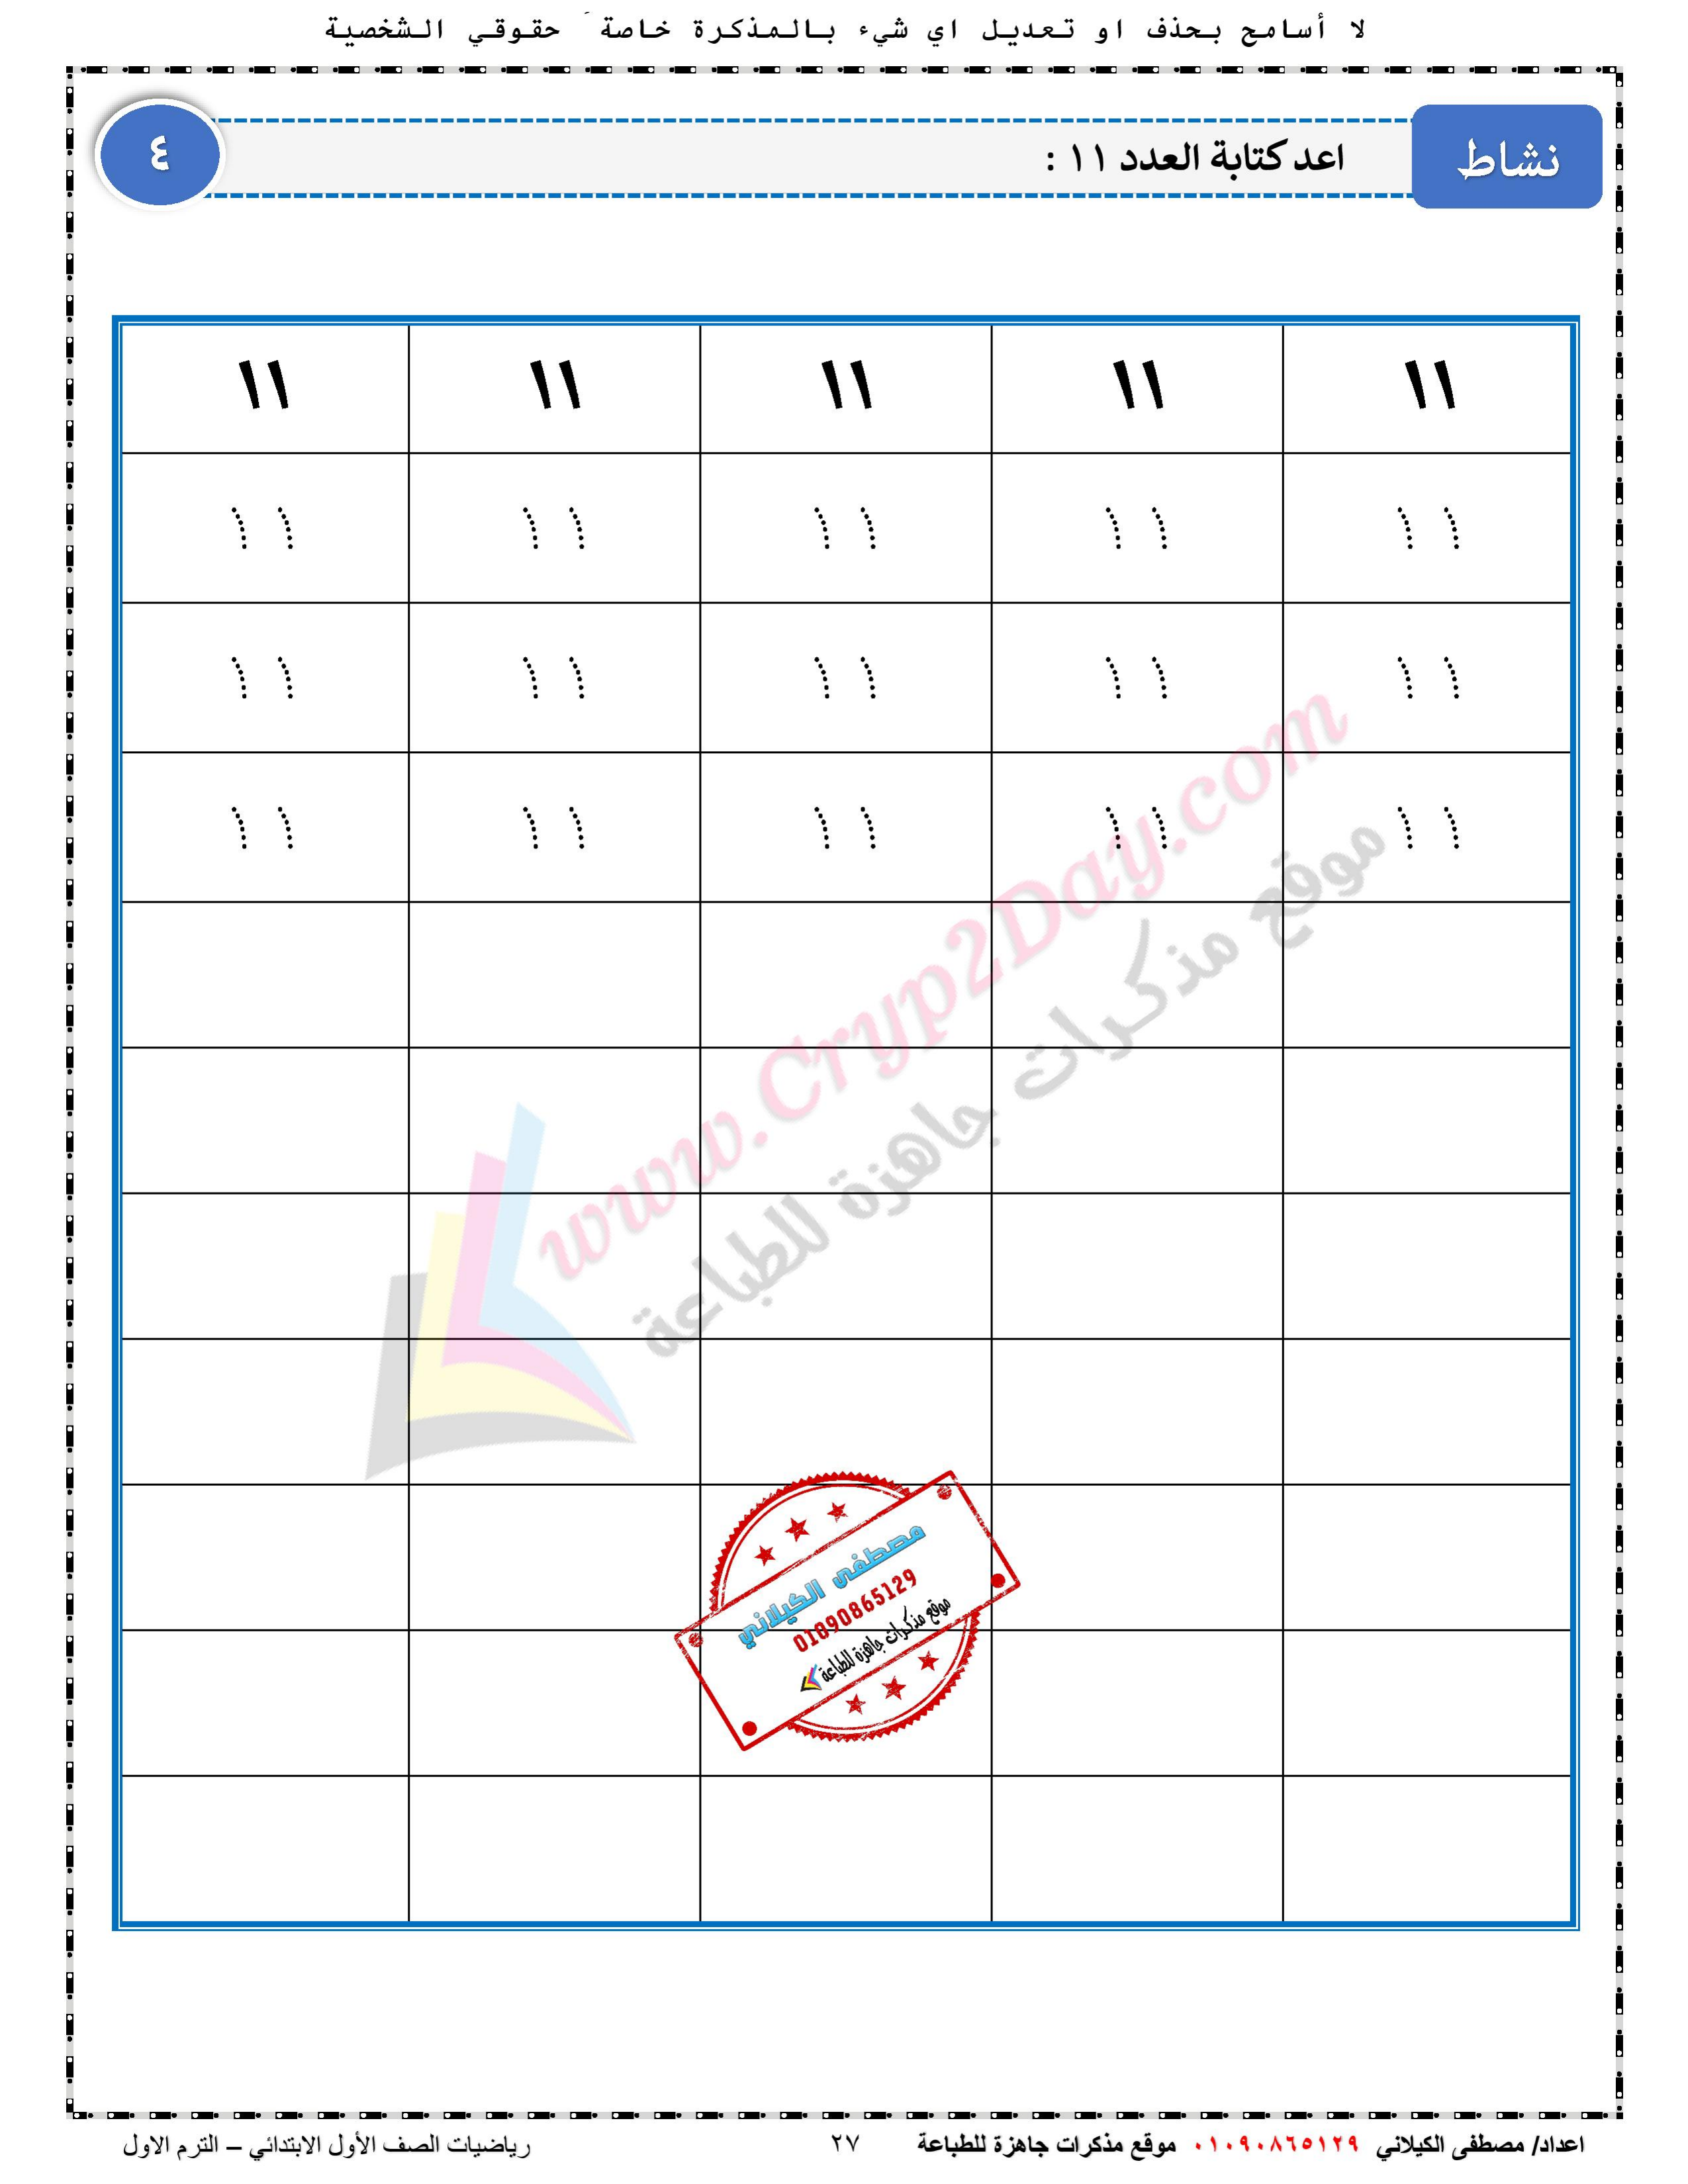 لا أسامح بحذف او تعديل اي شيء بالمذكرة خاصة ً حقوقي الشخصية
نشاط
اعد كتابة العدد ١١ :
٤
١١ ١١ ١١ ١١ ١١
١١ ١١ ١١ ١١ ١١
١١ ١١ ١١ ١١ ١١
١١ ١١ ١١ ١١ ١١
www.Cryp2Day.com
موقع مذكرات جاهزة للطباعة
مصطفى الكيلاني
01090865129
موقع مذكرات جاهزة للطباعة
اعداد/ مصطفى الكيلاني ٠١٠٩٠٨٦٥١٢٩ موقع مذكرات جاهزة للطباعة ٢٧ رياضيات الصف الأول الابتدائي – الترم الاول